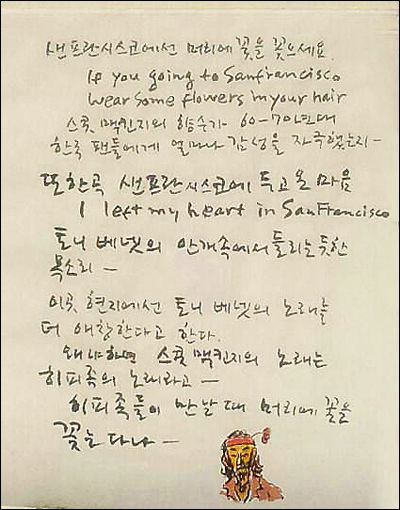 샌프란시스코에선 머리에 꽃을 꽂으세요
If you going to Sanfrancisco
wear some flowers in your hair
스콧 맥킨지의 향수가 60-70년대
한국 팬들에게 얼마나 감성을 자극했는지-
또한곡 샌프란시스코에 두고 온 마음
I left my heart in SanFrancisco
토니 베넷의 안개속에서 들리는듯한
목소리 -
이곳 현지에선 토니 베넷의 노래를
더 애창한다고 한다.
왜냐하면 스콧 맥킨지의 노래는
히피족의 노래라고 -
히피족들이 만날 때 머리에 꽃을
꽂는다나 -